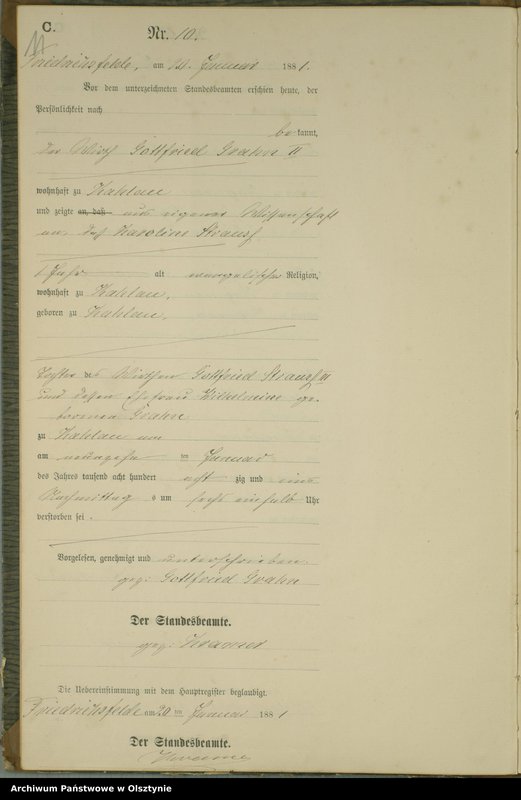 C.
Nr. 10.
11
Friedrichsfelde, am 20. Januar 1881.
Vor dem unterzeichneten Standesbeamten erschien heute, der
Persönlichkeit nach
bekannt,
der Wirth Gottfried Grahn II
wohnhaft zu Kahlau
und zeigte an, daß aus eigener Wissenschaft
an, daß Karoline Strauß
1 Jahr alt evangelischer Religion,
wohnhaft zu Kahlau,
geboren zu Kahlau,
Tochter des Wirthen Gottfried Strauß III
und dessen Ehefrau Wilhelmine ge-
borenen Grahn
zu Kahlau am
am neunzehn ten Januar
des Jahres tausend acht hundert acht zig und eins
Nachmittag s um sechs einhalb Uhr
verstorben sei.
Vorgelesen, genehmigt und unterschrieben
gez: Gottfried Grahn
Der Standesbeamte.
gez: Kramer
Die Uebereinstimmung mit dem Hauptregister beglaubigt.
Friedrichsfelde am 20 ten Januar 1881
Der Standesbeamte.
Archiwum Państwowe w Olsztynie